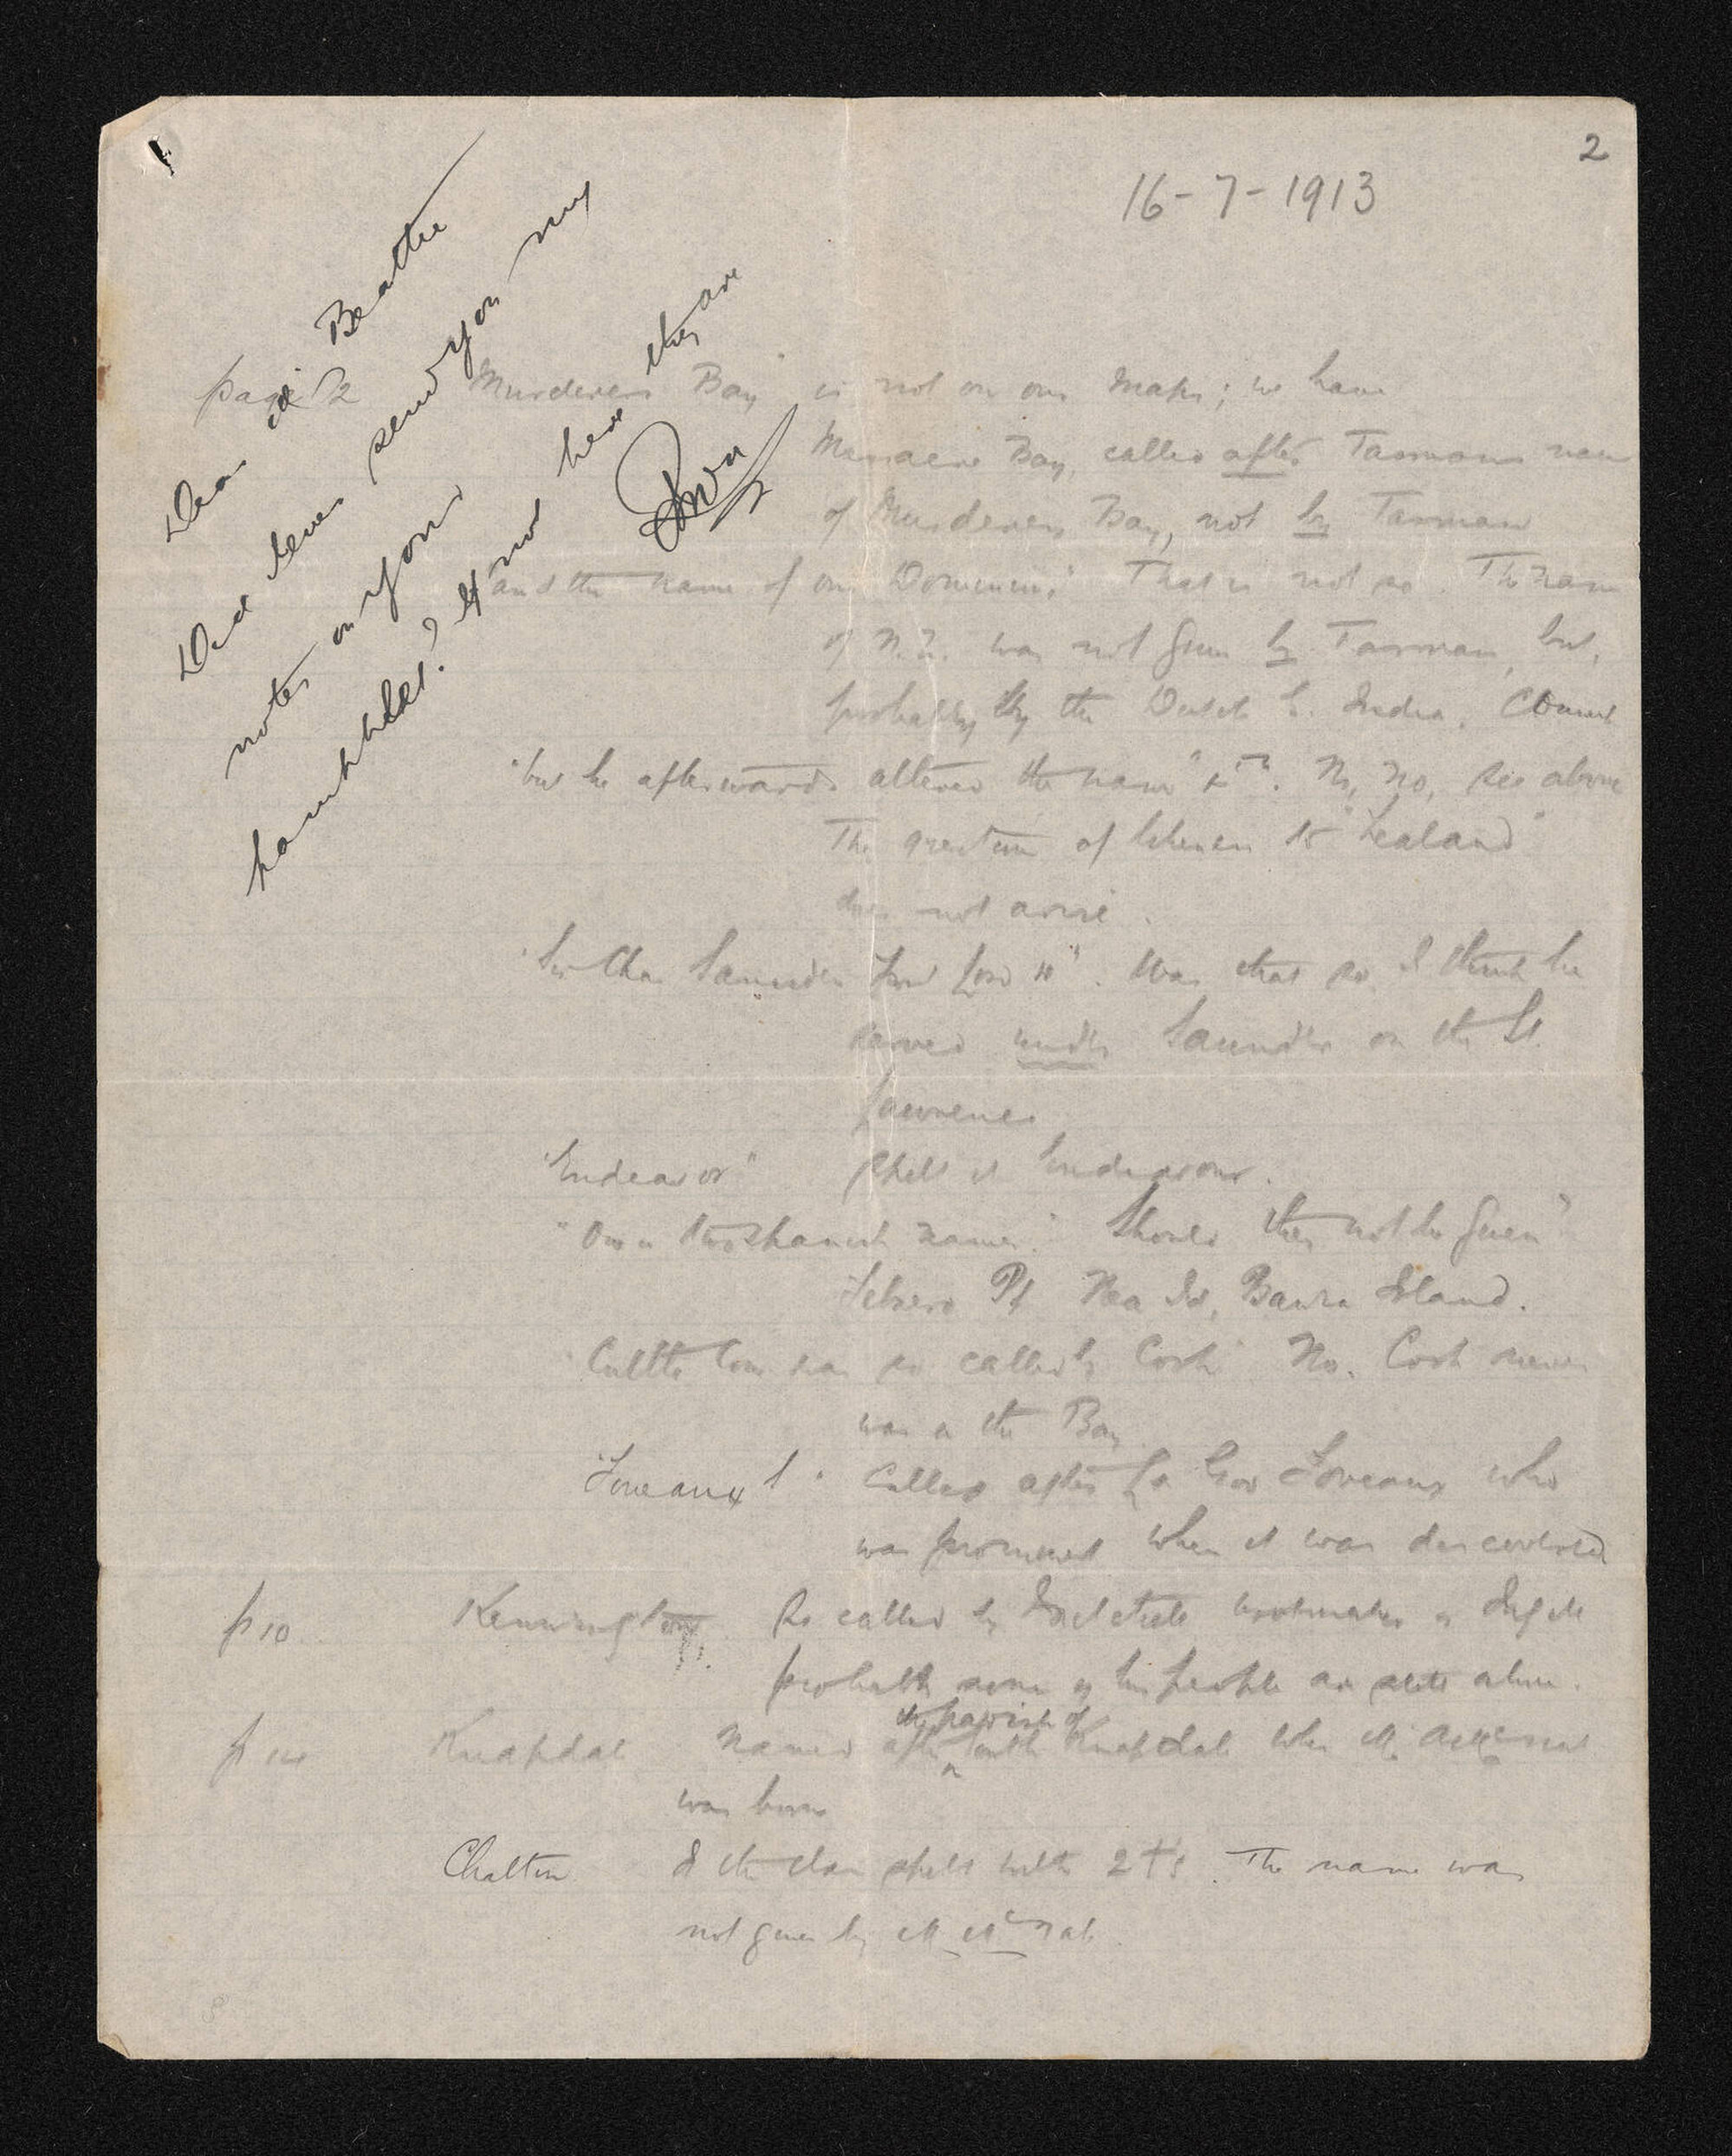 2
16-7-1913
Dear Beattie
Did I ever send you my
notes on your
pamphlet? If not here they are
page 2 "Murderers Bay" is not on our maps; we have
Massacre Bay, called after Tasmans name
of Murderers Bay, not by Tasman
"and the name of our Dominion". That is not so. The name
of N.Z. was not given by Tasman, but,
probably by the Dutch E. India. Council
"but he afterwards altered the name". No, No, see above
The question of "Zealand"
does not arise.
"Sir Chas Saunders First Lord". Was that so I think he
served under Saunders on the St.
Lawrence
"Endeavor" Spell it Endeavour.
"One or two Spanish names." Should they not be given
Febrero Pt Nea Is, Bauza Island.
Cuttle Cove was so called by Cook" No. Cook never
was in the Bay
"Foveaux S" Called after Lt Gov Foveaux who
was prominent when it was discovered
p 10 Kennington. So called by bootmaker
probably some of his people are still alive.
the parish of
Knapdale Named after South Knapdale where Mr McNab
was born
Chatton I the clan spell with 2 t's. The name was
not given by Mr McNab.